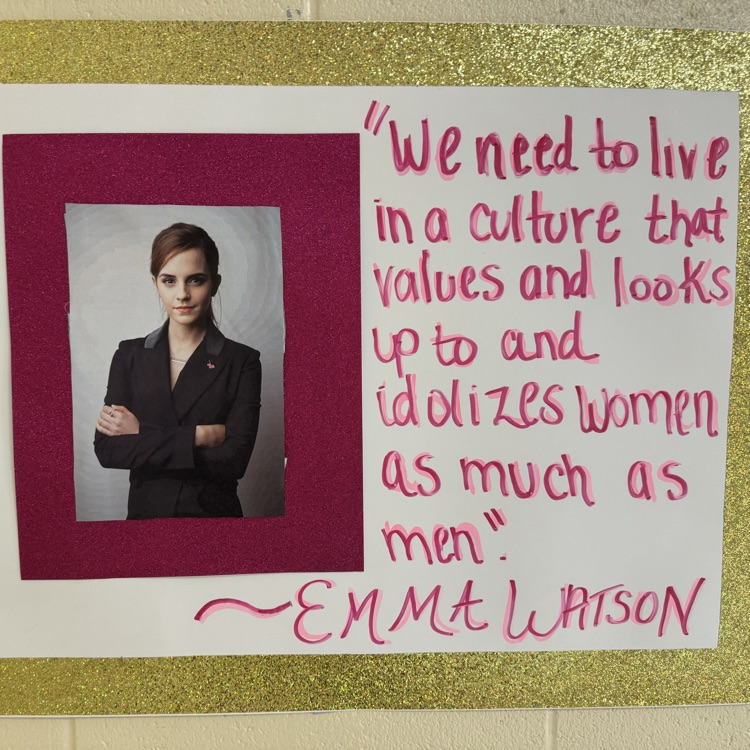 "We need to live
in a culture that
values and looks
up to and
idolizes women
as much as
men".
~EMMA WATSON